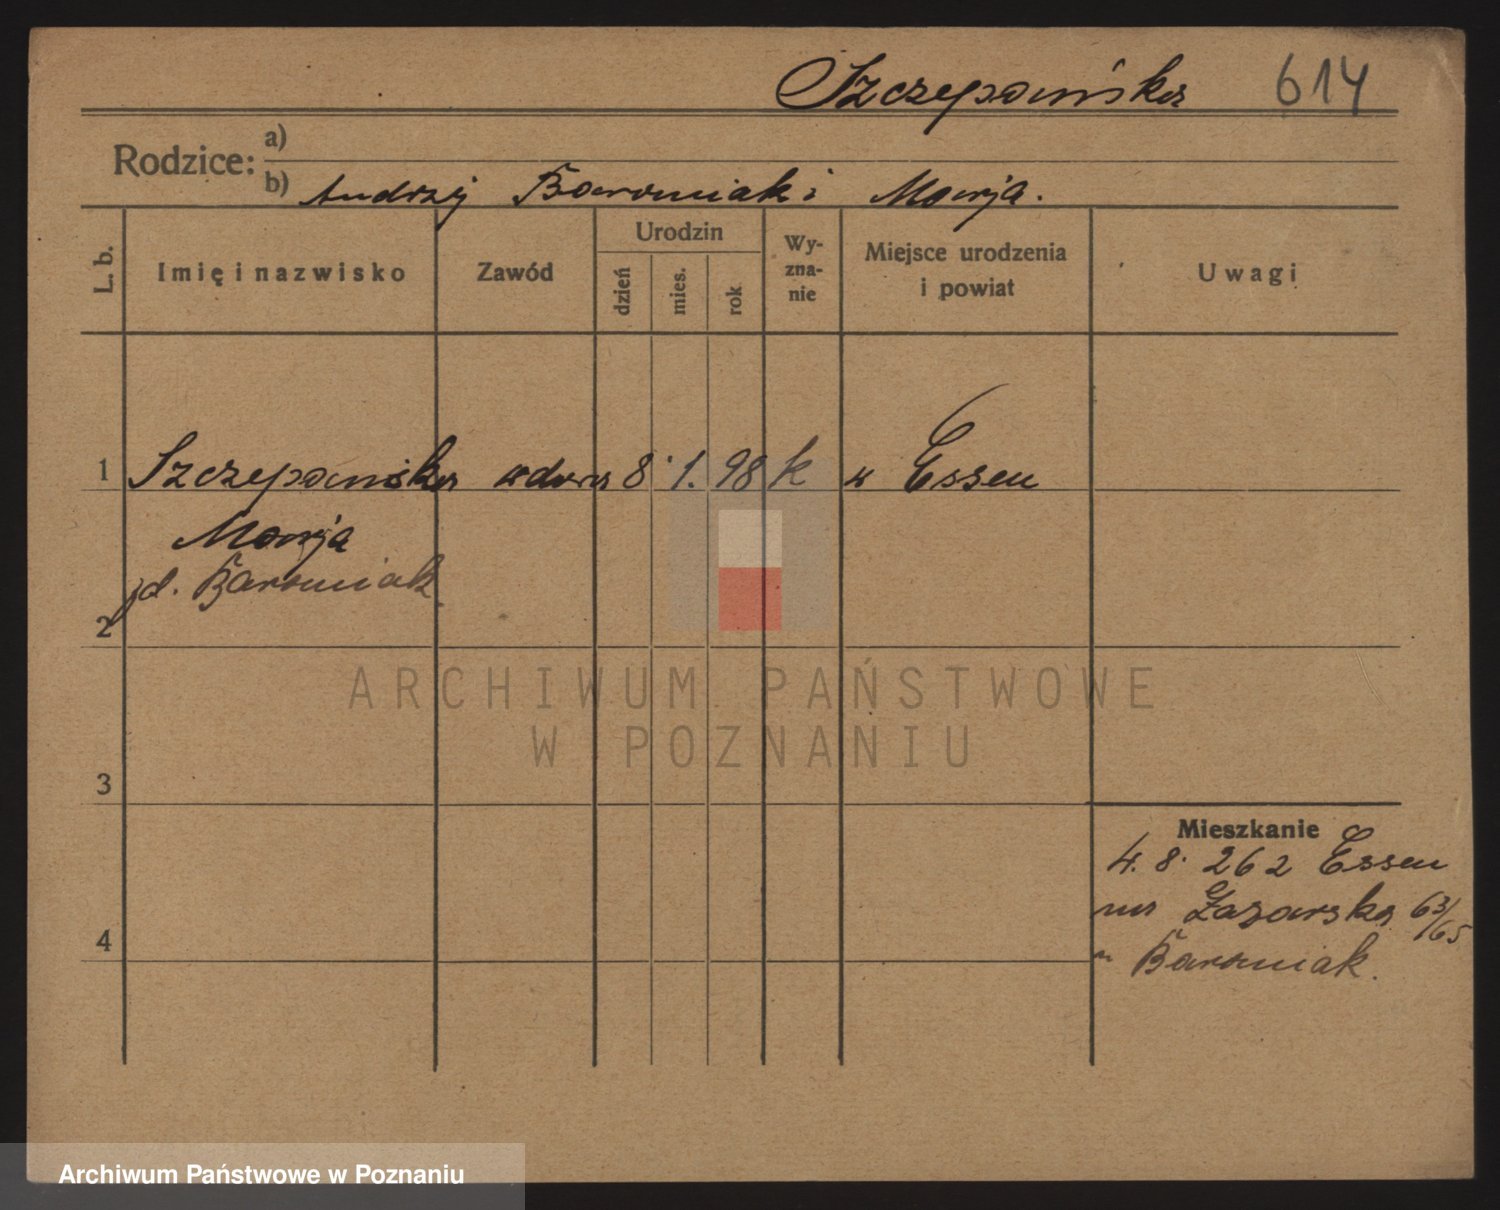 Szczepańska 614
Rodzice: a)
b) Andrzej Baroniak i Marja.
L. b. Imię i nazwisko Zawód Urodzin Wy-zna-nie Miejsce urodzenia i powiat Uwagi
dzień mies. rok
1 Szczepańska wdowa 8 1. 98 k w Essen
Marja
zd. Baroniak
2
3
Mieszkanie
4. 8. 26 z Essen
na Łazarska 63/65
4
Baroniak.
ARCHIWUM PAŃSTWOWE
W POZNANIU
Archiwum Państwowe w Poznaniu